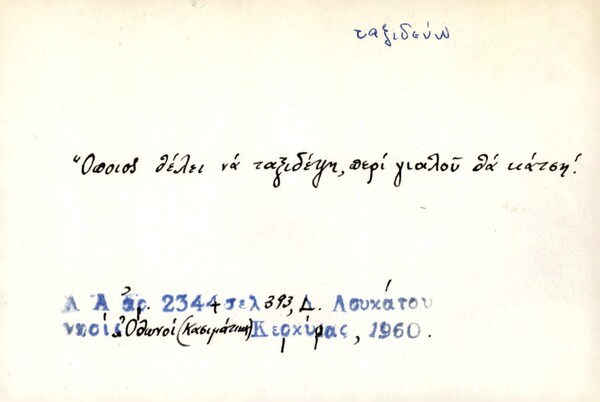 ταξιδεύω
Ὅποιος θέλει νά ταξιδέψη, περί γιαλοῦ θά κάτση!
Λ Α ἀρ. 2344 σελ 393, Δ. Λουκάτου
νησί Ὀθωνοί (Κασιμάτικα) Κερκύρας, 1960.